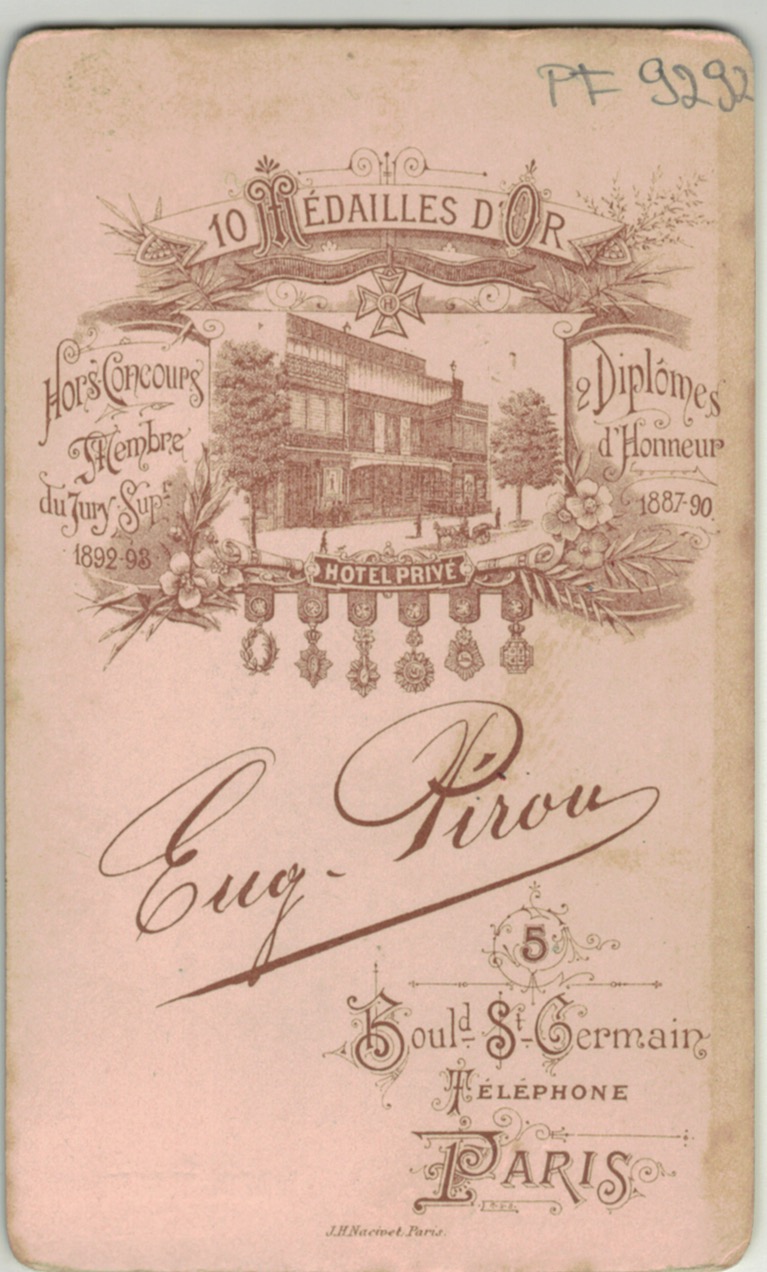 PF 9292
10 MÉDAILLES D'OR
H
Hors-Concours
Membre
du Jury Supr
1892-93
2 Diplômes
d'Honneur
1887-90.
HOTEL PRIVÉ
Eug. Pirou
5
Bould St-Germain
TÉLÉPHONE
PARIS
J.H.Nacivet Paris.